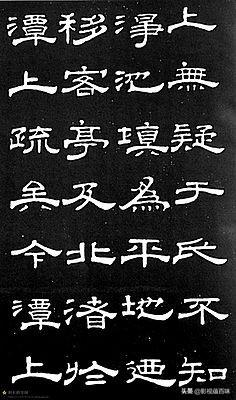 上無疑于氏不知
淨池填為平地迺
移客亭及北渚於
潭上疏矣今潭上
头条 @影视蕴百味